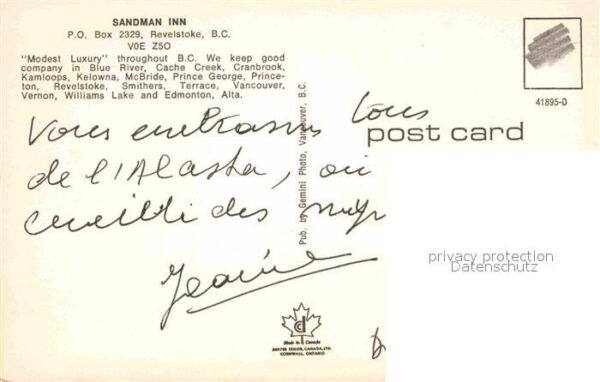 SANDMAN INN
P.O. Box 2329, Revelstoke, B.C.
V0E Z5O
"Modest Luxury" throughout B.C. We keep good
company in Blue River, Cache Creek, Cranbrook,
Kamloops, Kelowna, McBride, Prince George, Prince-
ton, Revelstoke, Smithers, Terrace, Vancouver,
Vernon, Williams Lake and Edmonton, Alta.
41895-D
Vous embrassons tous
post card
de l'Alaska, où
cueilli des
Jeanine
Pub. by Gemini Photo, Vancouver, B.C.
privacy protection
Datenschutz
Made in Canada
COLOR, CANADA, LTD.
CORNWALL, ONTARIO